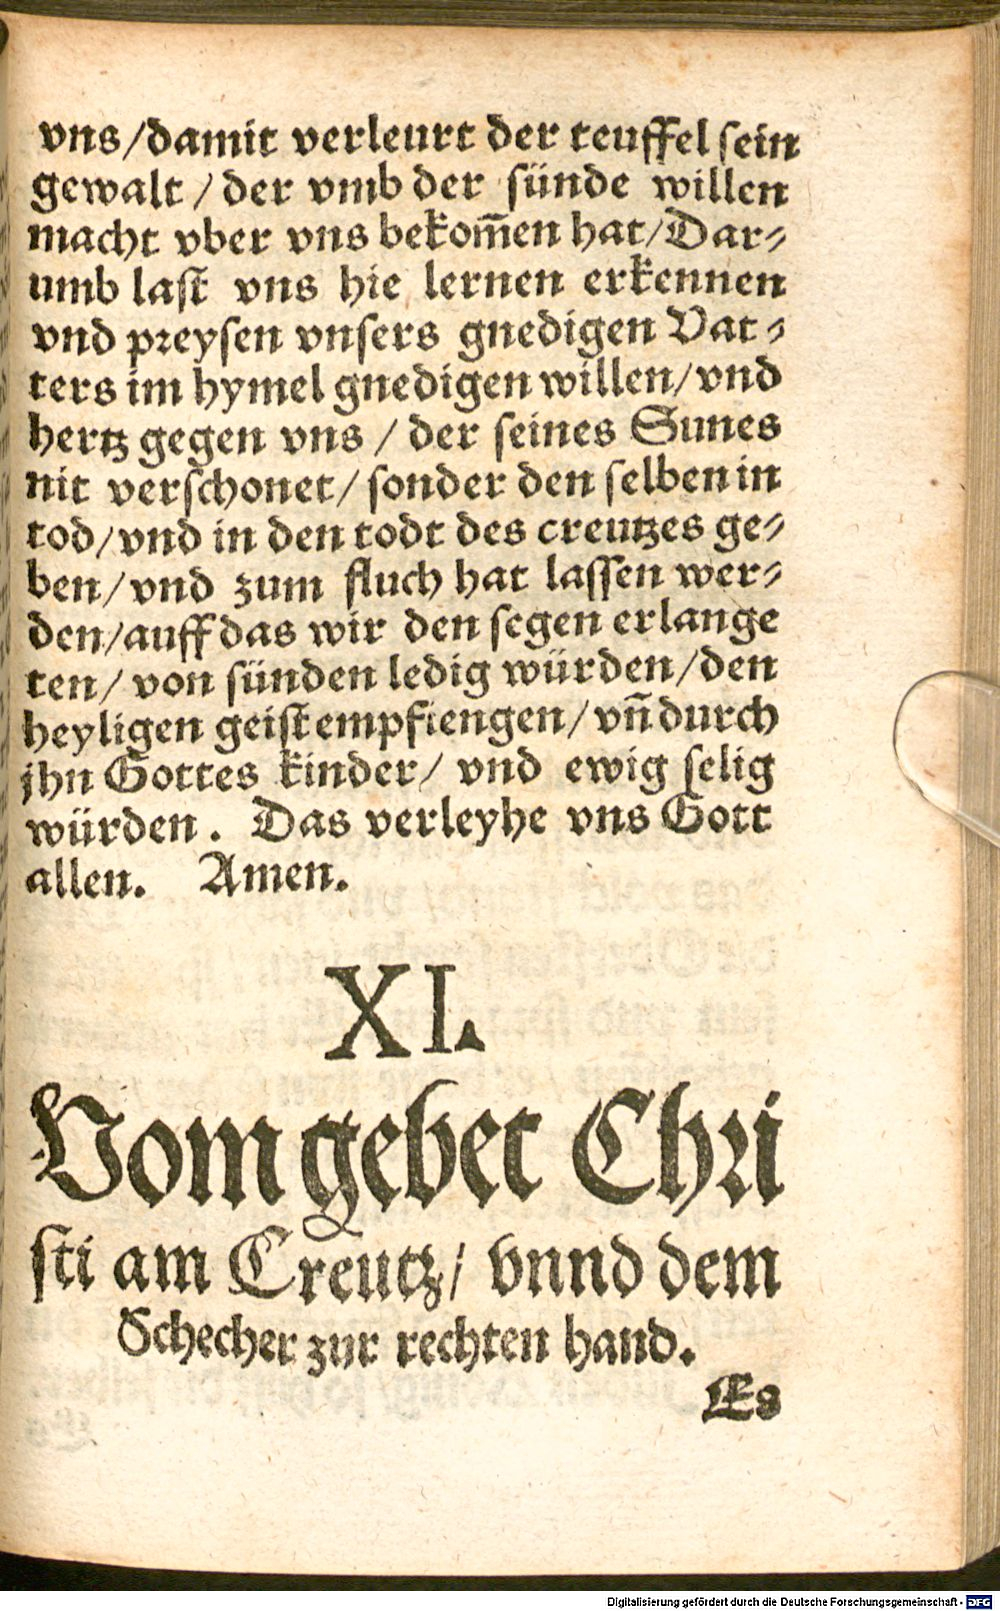 vns/damit verleurt der teuffel sein
gewalt / der vmb der sünde willen
macht vber vns bekom̄en hat/Dar⸗
umb last vns hie lernen erkennen
vnd preysen vnsers gnedigen Vat⸗
ters im hymel gnedigen willen/vnd
hertz gegen vns / der seines Sunes
nit verschonet/sonder den selben in
tod/vnd in den todt des creutzes ge⸗
ben/vnd zum fluch hat lassen wer⸗
den/auff das wir den segen erlange
ten/ von sünden ledig würden/den
heyligen geist empfiengen/vn̄ durch
jhn Gottes kinder/ vnd ewig selig
würden. Das verleyhe vns Gott
allen. Amen.
XI.
Vom gebet Chri
sti am Creutz/ vnnd dem
Schecher zur rechten hand.
Es
Digitalisierung gefördert durch die Deutsche Forschungsgemeinschaft - DFG